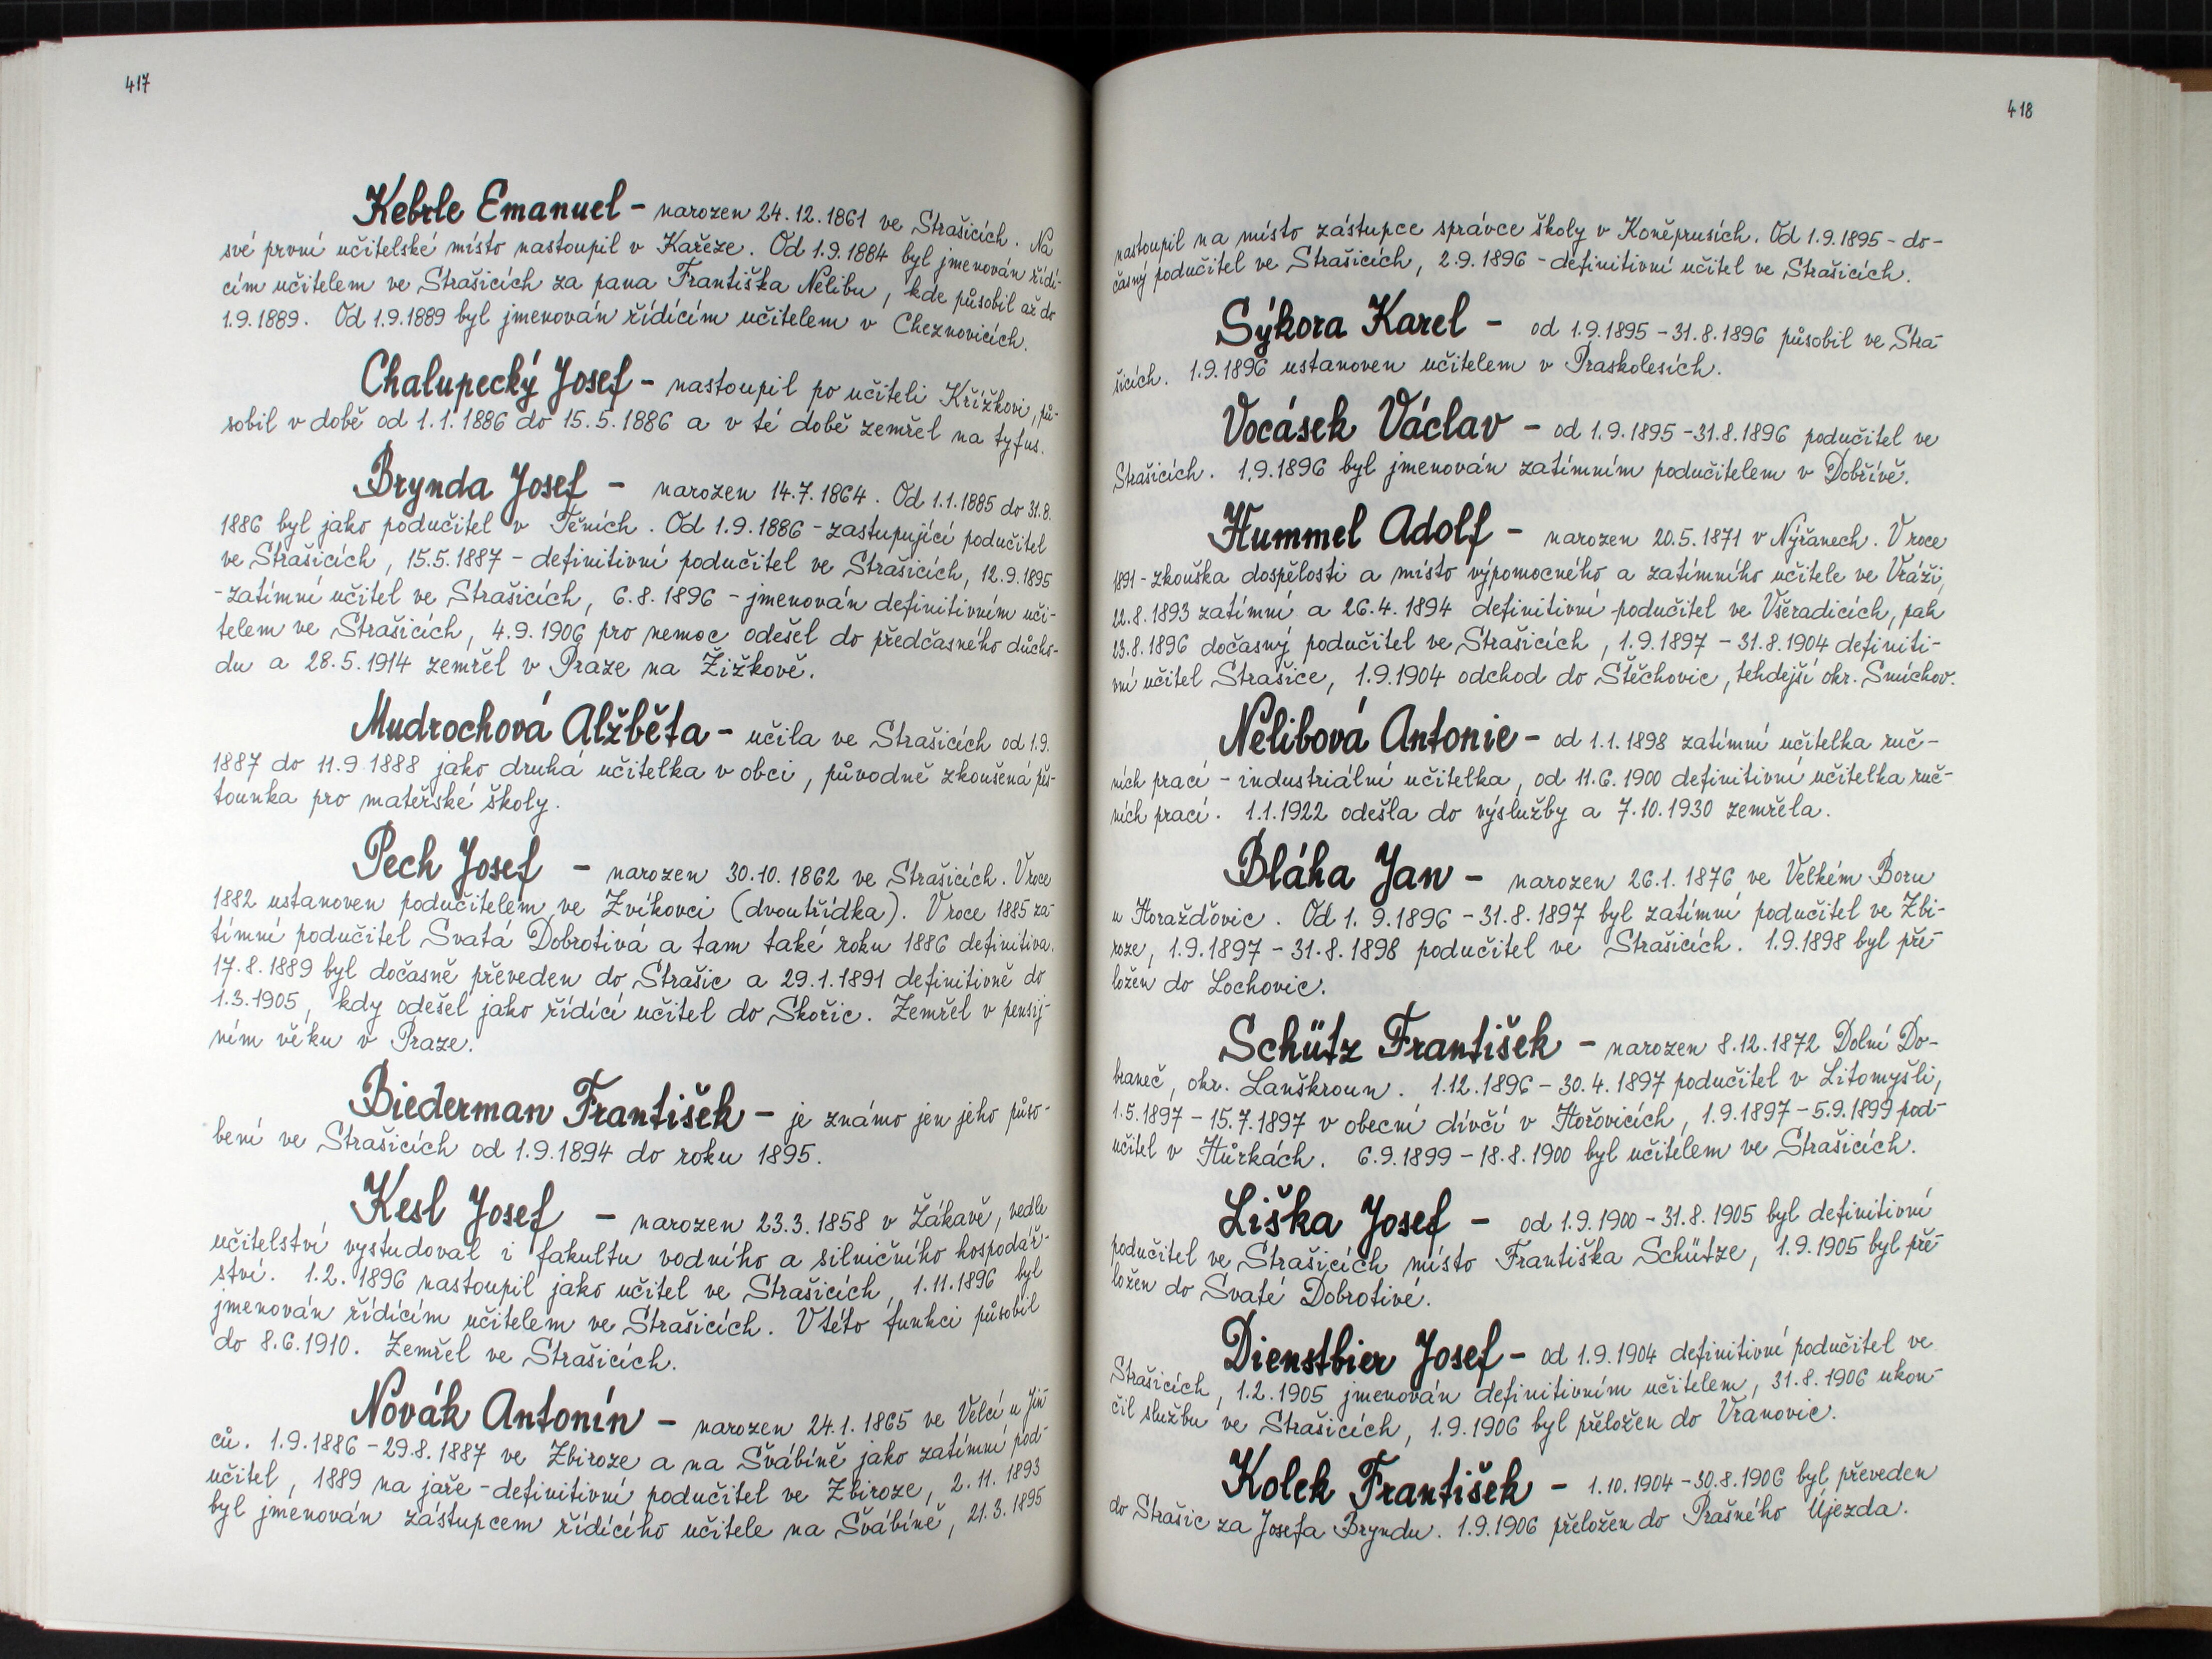 417
Kebrle Emanuel - narozen 24.12.1861 ve Strašicích. Na
své první učitelské místo nastoupil v Kařeze. Od 1.9.1884 byl jmenován řídí-
cím učitelem ve Strašicích za pana Františka Nelibu, kde působil až do
1.9.1889. Od 1.9.1889 byl jmenován řídícím učitelem v Cheznovicích.
Chalupecký Josef - nastoupil po učiteli Křížkovi, pů-
sobil v době od 1.1.1886 do 15.5.1886 a v té době zemřel na tyfus.
Brynda Josef - narozen 14.7.1864. Od 1.1.1885 do 31.8.
1886 byl jako podučitel v Těních. Od 1.9.1886 - zastupující podučitel
ve Strašicích, 15.5.1887 - definitivní podučitel ve Strašicích, 12.9.1895
- zatímní učitel ve Strašicích, 6.8.1896 - jmenován definitivním uči-
telem ve Strašicích, 4.9.1906 pro nemoc odešel do předčasného důcho-
du a 28.5.1914 zemřel v Praze na Žižkově.
Mudrochová Alžběta - učila ve Strašicích od 1.9.
1887 do 11.9.1888 jako druhá učitelka v obci, původně zkoušená pěs-
tounka pro mateřské školy.
Pech Josef - narozen 30.10.1862 ve Strašicích. V roce
1882 ustanoven podučitelem ve Zvíkovci (dvoutřídka). V roce 1885 za-
tímní podučitel Svatá Dobrotivá a tam také roku 1886 definitiva.
17.8.1889 byl dočasně převeden do Strašic a 29.1.1891 definitivně do
1.3.1905, kdy odešel jako řídící učitel do Skořic. Zemřel v pensij-
ním věku v Praze.
Biederman František - je známo jen jeho půso-
bení ve Strašicích od 1.9.1894 do roku 1895.
Kesl Josef - narozen 23.3.1858 v Žákavě, vedle
učitelství vystudoval i fakultu vodního a silničního hospodář-
ství. 1.2.1896 nastoupil jako učitel ve Strašicích, 1.11.1896 byl
jmenován řídícím učitelem ve Strašicích. V této funkci působil
do 8.6.1910. Zemřel ve Strašicích.
Novák Antonín - narozen 24.1.1865 ve Velcí u Jin-
ců. 1.9.1886 - 29.8.1887 ve Zbiroze a na Švábíně jako zatímní pod-
učitel, 1889 na jaře - definitivní podučitel ve Zbiroze, 2.11.1893
byl jmenován zástupcem řídícího učitele na Švábíně, 21.3.1895
418
nastoupil na místo zástupce správce školy v Koněprusích. Od 1.9.1895 - do-
časný podučitel ve Strašicích, 2.9.1896 - definitivní učitel ve Strašicích.
Sýkora Karel - od 1.9.1895 - 31.8.1896 působil ve Stra-
šicích. 1.9.1896 ustanoven učitelem v Praskolesích.
Vocásek Václav - od 1.9.1895 - 31.8.1896 podučitel ve
Strašicích. 1.9.1896 byl jmenován zatímním podučitelem v Dobřívě.
Hummel Adolf - narozen 20.5.1871 v Nýřanech. V roce
1891 - zkouška dospělosti a místo výpomocného a zatímního učitele ve Vráži,
22.8.1893 zatímní a 26.4.1894 definitivní podučitel ve Všeradicích, pak
23.8.1896 dočasný podučitel ve Strašicích, 1.9.1897 - 31.8.1904 definiti-
vní učitel Strašice, 1.9.1904 odchod do Štěchovic, tehdejší okr. Smíchov.
Nelibová Antonie - od 1.1.1898 zatímní učitelka ruč-
ních prací - industriální učitelka, od 11.6.1900 definitivní učitelka ruč-
ních prací. 1.1.1922 odešla do výslužby a 7.10.1930 zemřela.
Bláha Jan - narozen 26.1.1876 ve Velkém Boru
u Horažďovic. Od 1.9.1896 - 31.8.1897 byl zatímní podučitel ve Zbi-
roze, 1.9.1897 - 31.8.1898 podučitel ve Strašicích. 1.9.1898 byl pře-
ložen do Lochovic.
Schütz František - narozen 8.12.1872 Dolní Do-
braneč, okr. Lanškroun. 1.12.1896 - 30.4.1897 podučitel v Litomyšli,
1.5.1897 - 15.7.1897 v obecní dívčí v Hořovicích, 1.9.1897 - 5.9.1899 pod-
učitel v Hůrkách. 6.9.1899 - 18.8.1900 byl učitelem ve Strašicích.
Liška Josef - od 1.9.1900 - 31.8.1905 byl definitivní
podučitel ve Strašicích místo Františka Schütze, 1.9.1905 byl pře-
ložen do Svaté Dobrotivé.
Dienstbier Josef - od 1.9.1904 definitivní podučitel ve
Strašicích, 1.2.1905 jmenován definitivním učitelem, 31.8.1906 ukon-
čil službu ve Strašicích, 1.9.1906 byl přeložen do Vranovic.
Kolek František - 1.10.1904 - 30.8.1906 byl převeden
do Strašic za Josefa Bryndu. 1.9.1906 přeložen do Prašného Újezda.